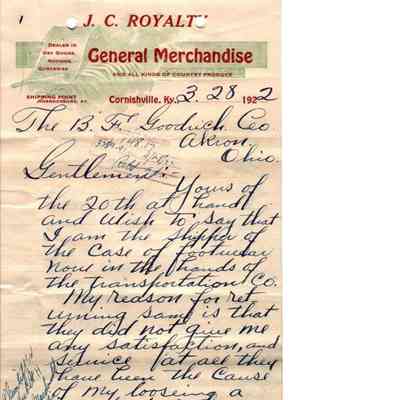 1
J. C. ROYALTY
DEALER IN
DRY GOODS,
NOTIONS,
QUEENSWARE
General Merchandise
AND ALL KINDS OF COUNTRY PRODUCE
SHIPPING POINT
Cornishville, Ky., 3. 28 1922
The B. F. Goodrich Co
Akron,
Ohio.
Gentlemen:-
Yours of
the 20th at hand
and Wish to say that
I am the shipper of
the case of footwear
now in the hands of
the transportation Co.
My reason for ret
urning same is that
they did not give me
any satisfaction, and
service at all they
have been the cause
of my looseing a